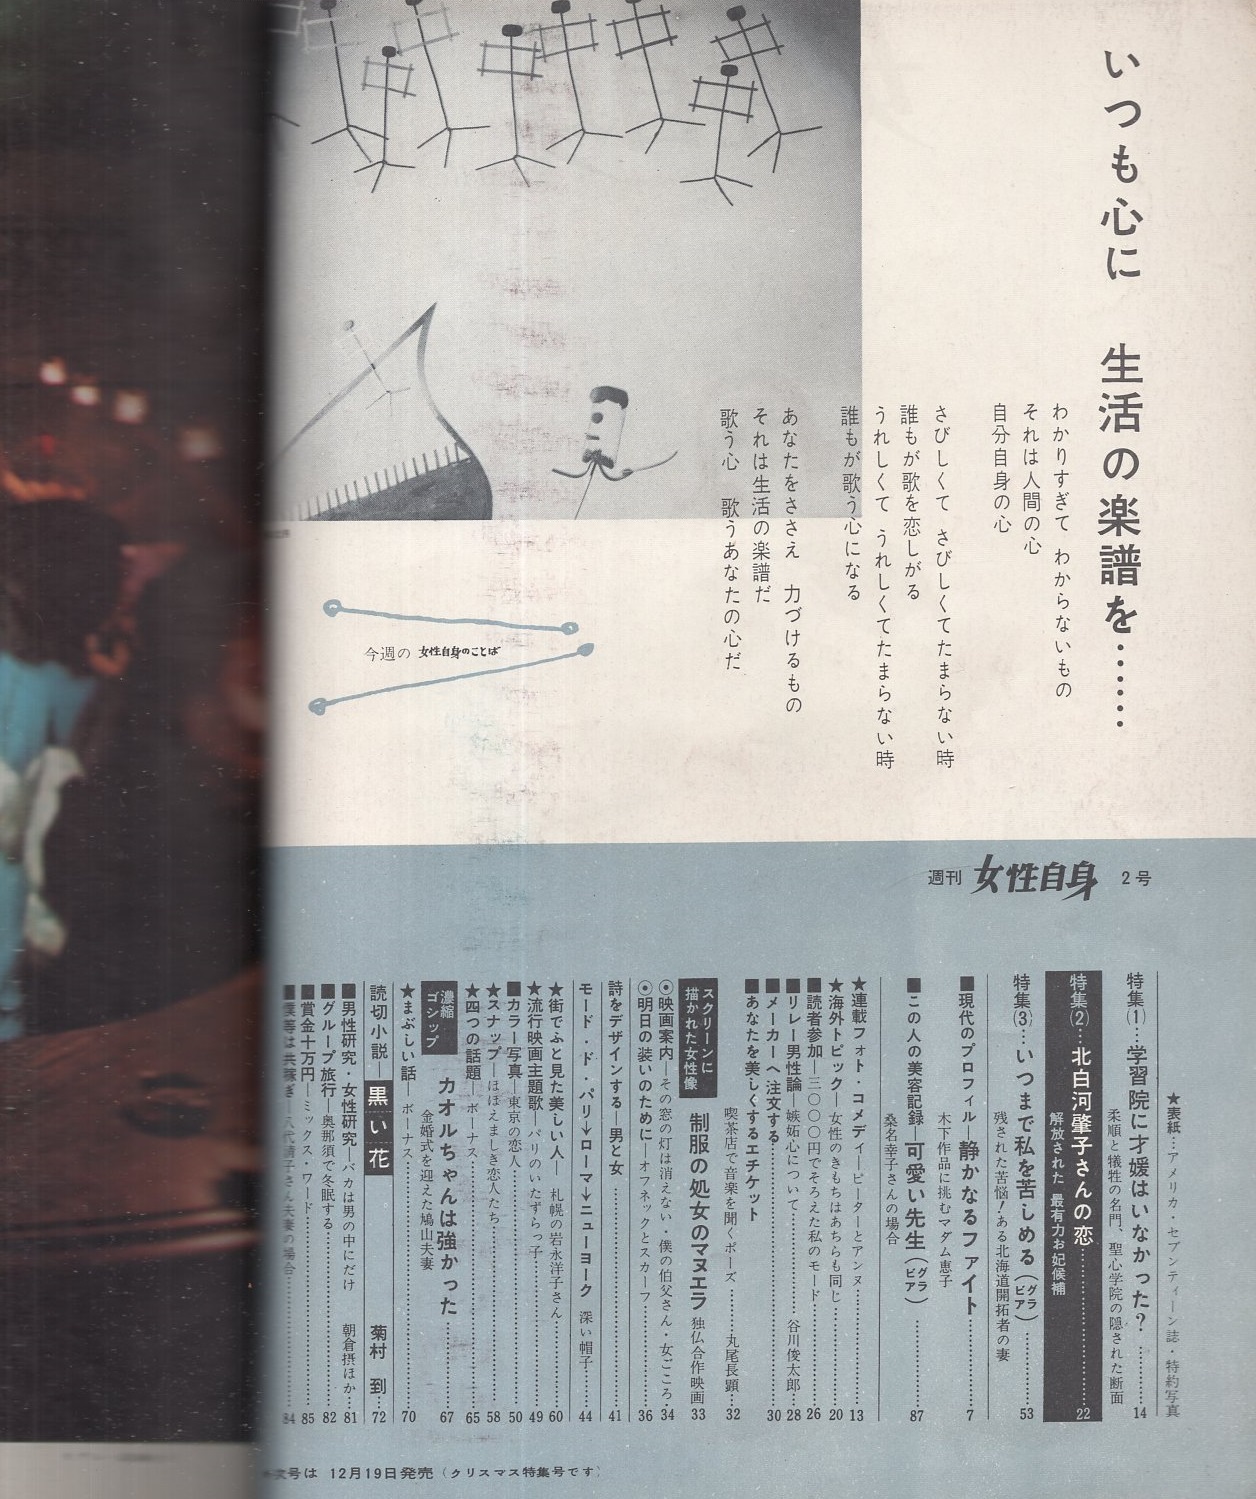 いつも心に 生活の楽譜を………
わかりすぎて わからないもの
それは人間の心
自分自身の心
さびしくて さびしくてたまらない時
誰もが歌を恋しがる
うれしくて うれしくてたまらない時
誰もが歌う心になる
あなたをささえ 力づけるもの
それは生活の楽譜だ
歌う心 歌うあなたの心だ
今週の 女性自身のことば
週刊 女性自身 2号
★表紙…アメリカ・セブンティーン誌・特約写真
特集(1)…学習院に才媛はいなかった?…………14
柔順と犠牲の名門、聖心学院の隠された断面
特集(2)…北白河肇子さんの恋…………22
解放された 最有力お妃候補
特集(3)…いつまで私を苦しめる(グラビア)…………53
残された苦悩!ある北海道開拓者の妻
■現代のプロフィル―静かなるファイト…………7
木下作品に挑むマダム恵子
■この人の美容記録―可愛い先生(グラビア)…………87
桑名幸子さんの場合
★連載フォト・コメディ―ピーターとアンヌ…………13
★海外トピック―女性のきもちはあちらも同じ…………20
■読者参加―三〇〇〇円でそろえた私のモード…………26
■リレー男性論―嫉妬心について…………谷川俊太郎…28
■メーカーへ注文する…………30
■あなたを美しくするエチケット
喫茶店で音楽を聞くポーズ…………丸尾長顕…32
スクリーンに描かれた女性像 制服の処女のマヌエラ 独仏合作映画 33
◎映画案内―その窓の灯は消えない・僕の伯父さん・女ごころ…34
◎明日の装いのために―オフネックとスカーフ…………36
詩をデザインする―男と女…………41
モード・ド・パリ→ローマ→ニューヨーク 深い帽子…………44
★街でふと見た美しい人― 札幌の岩永洋子さん…………60
★流行映画主題歌―パリのいたずらっ子…………49
■カラー写真―東京の恋人…………50
★スナップ―ほほえましき恋人たち…………58
★四つの話題― ボーナス…………65
濃縮ゴシップ カオルちゃんは強かった…………67
金婚式を迎えた鳩山夫妻
★まぶしい話― ボーナス…………70
読切小説―黒い花 菊村 到…72
■男性研究・女性研究―バカは男の中にだけ 朝倉摂ほか…81
■グループ旅行―奥那須で冬眠する…………82
■賞金十万円―ミックス・ワード…………85
■僕等は共稼ぎ―八代靖子さん夫妻の場合…………84
次号は 12月19日発売(クリスマス特集号です)